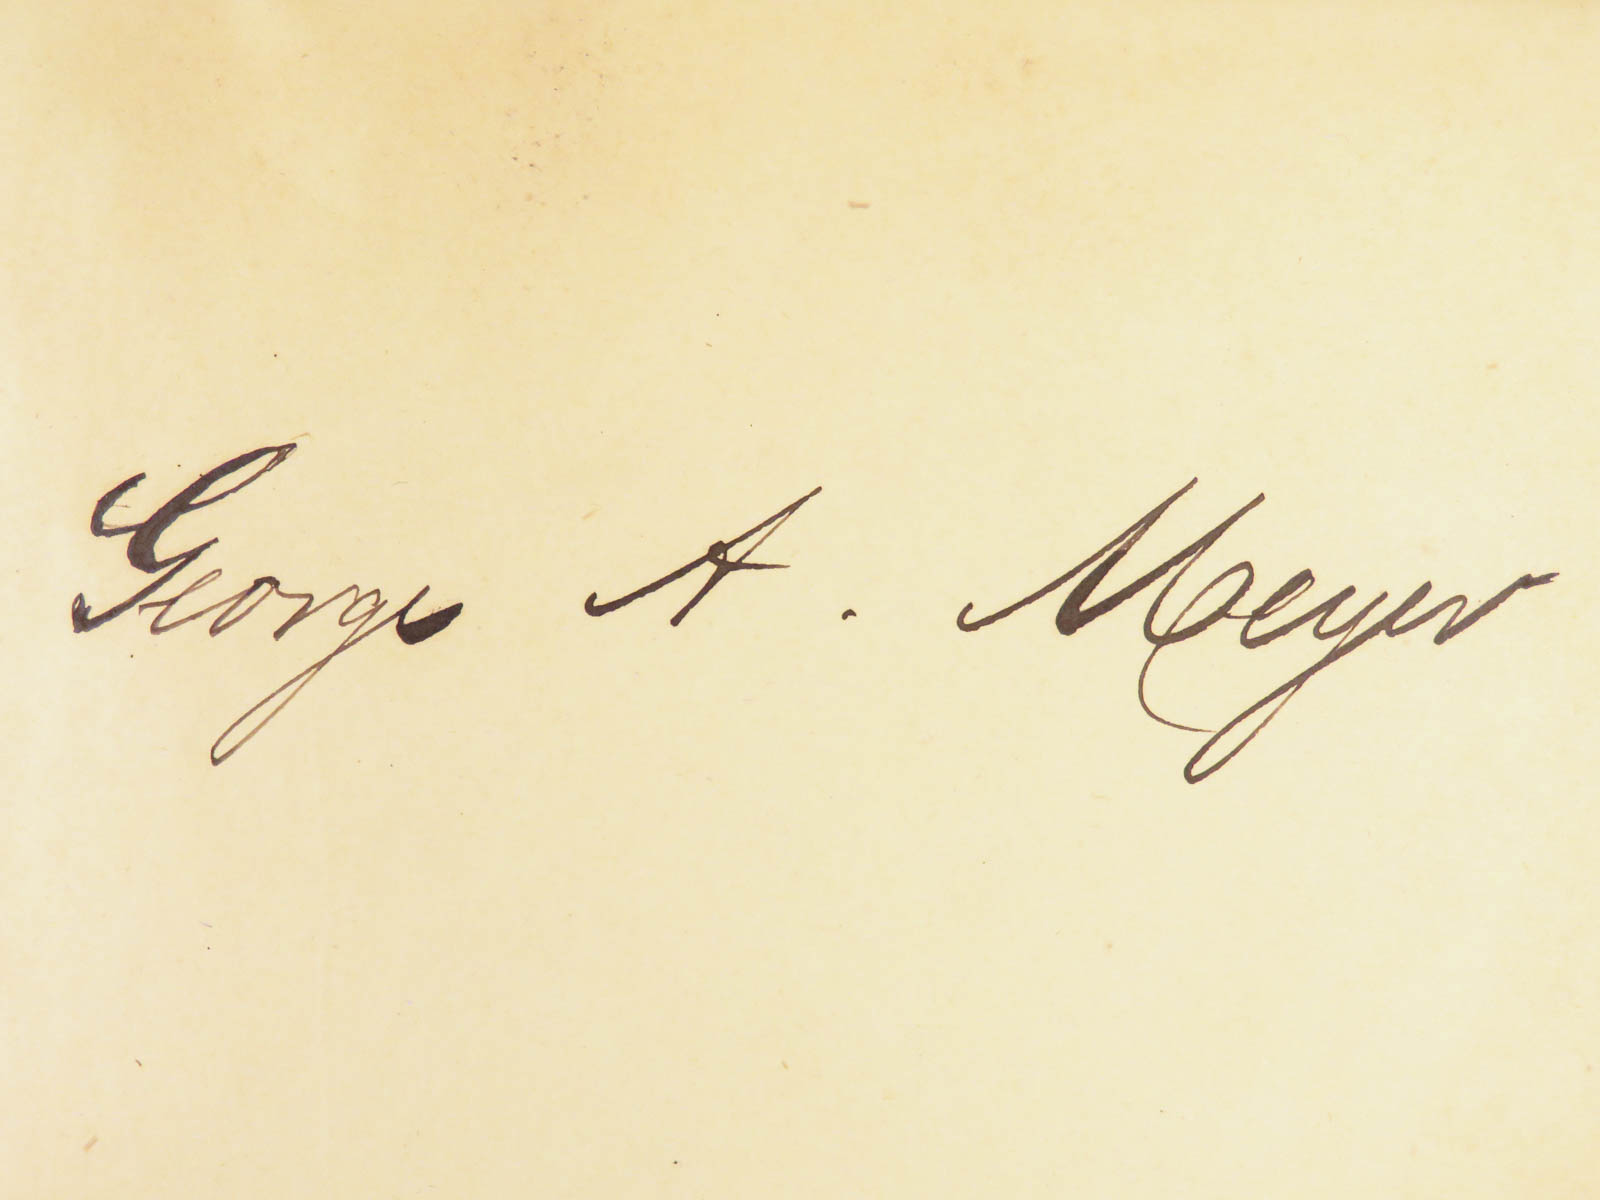 George A. Meyer